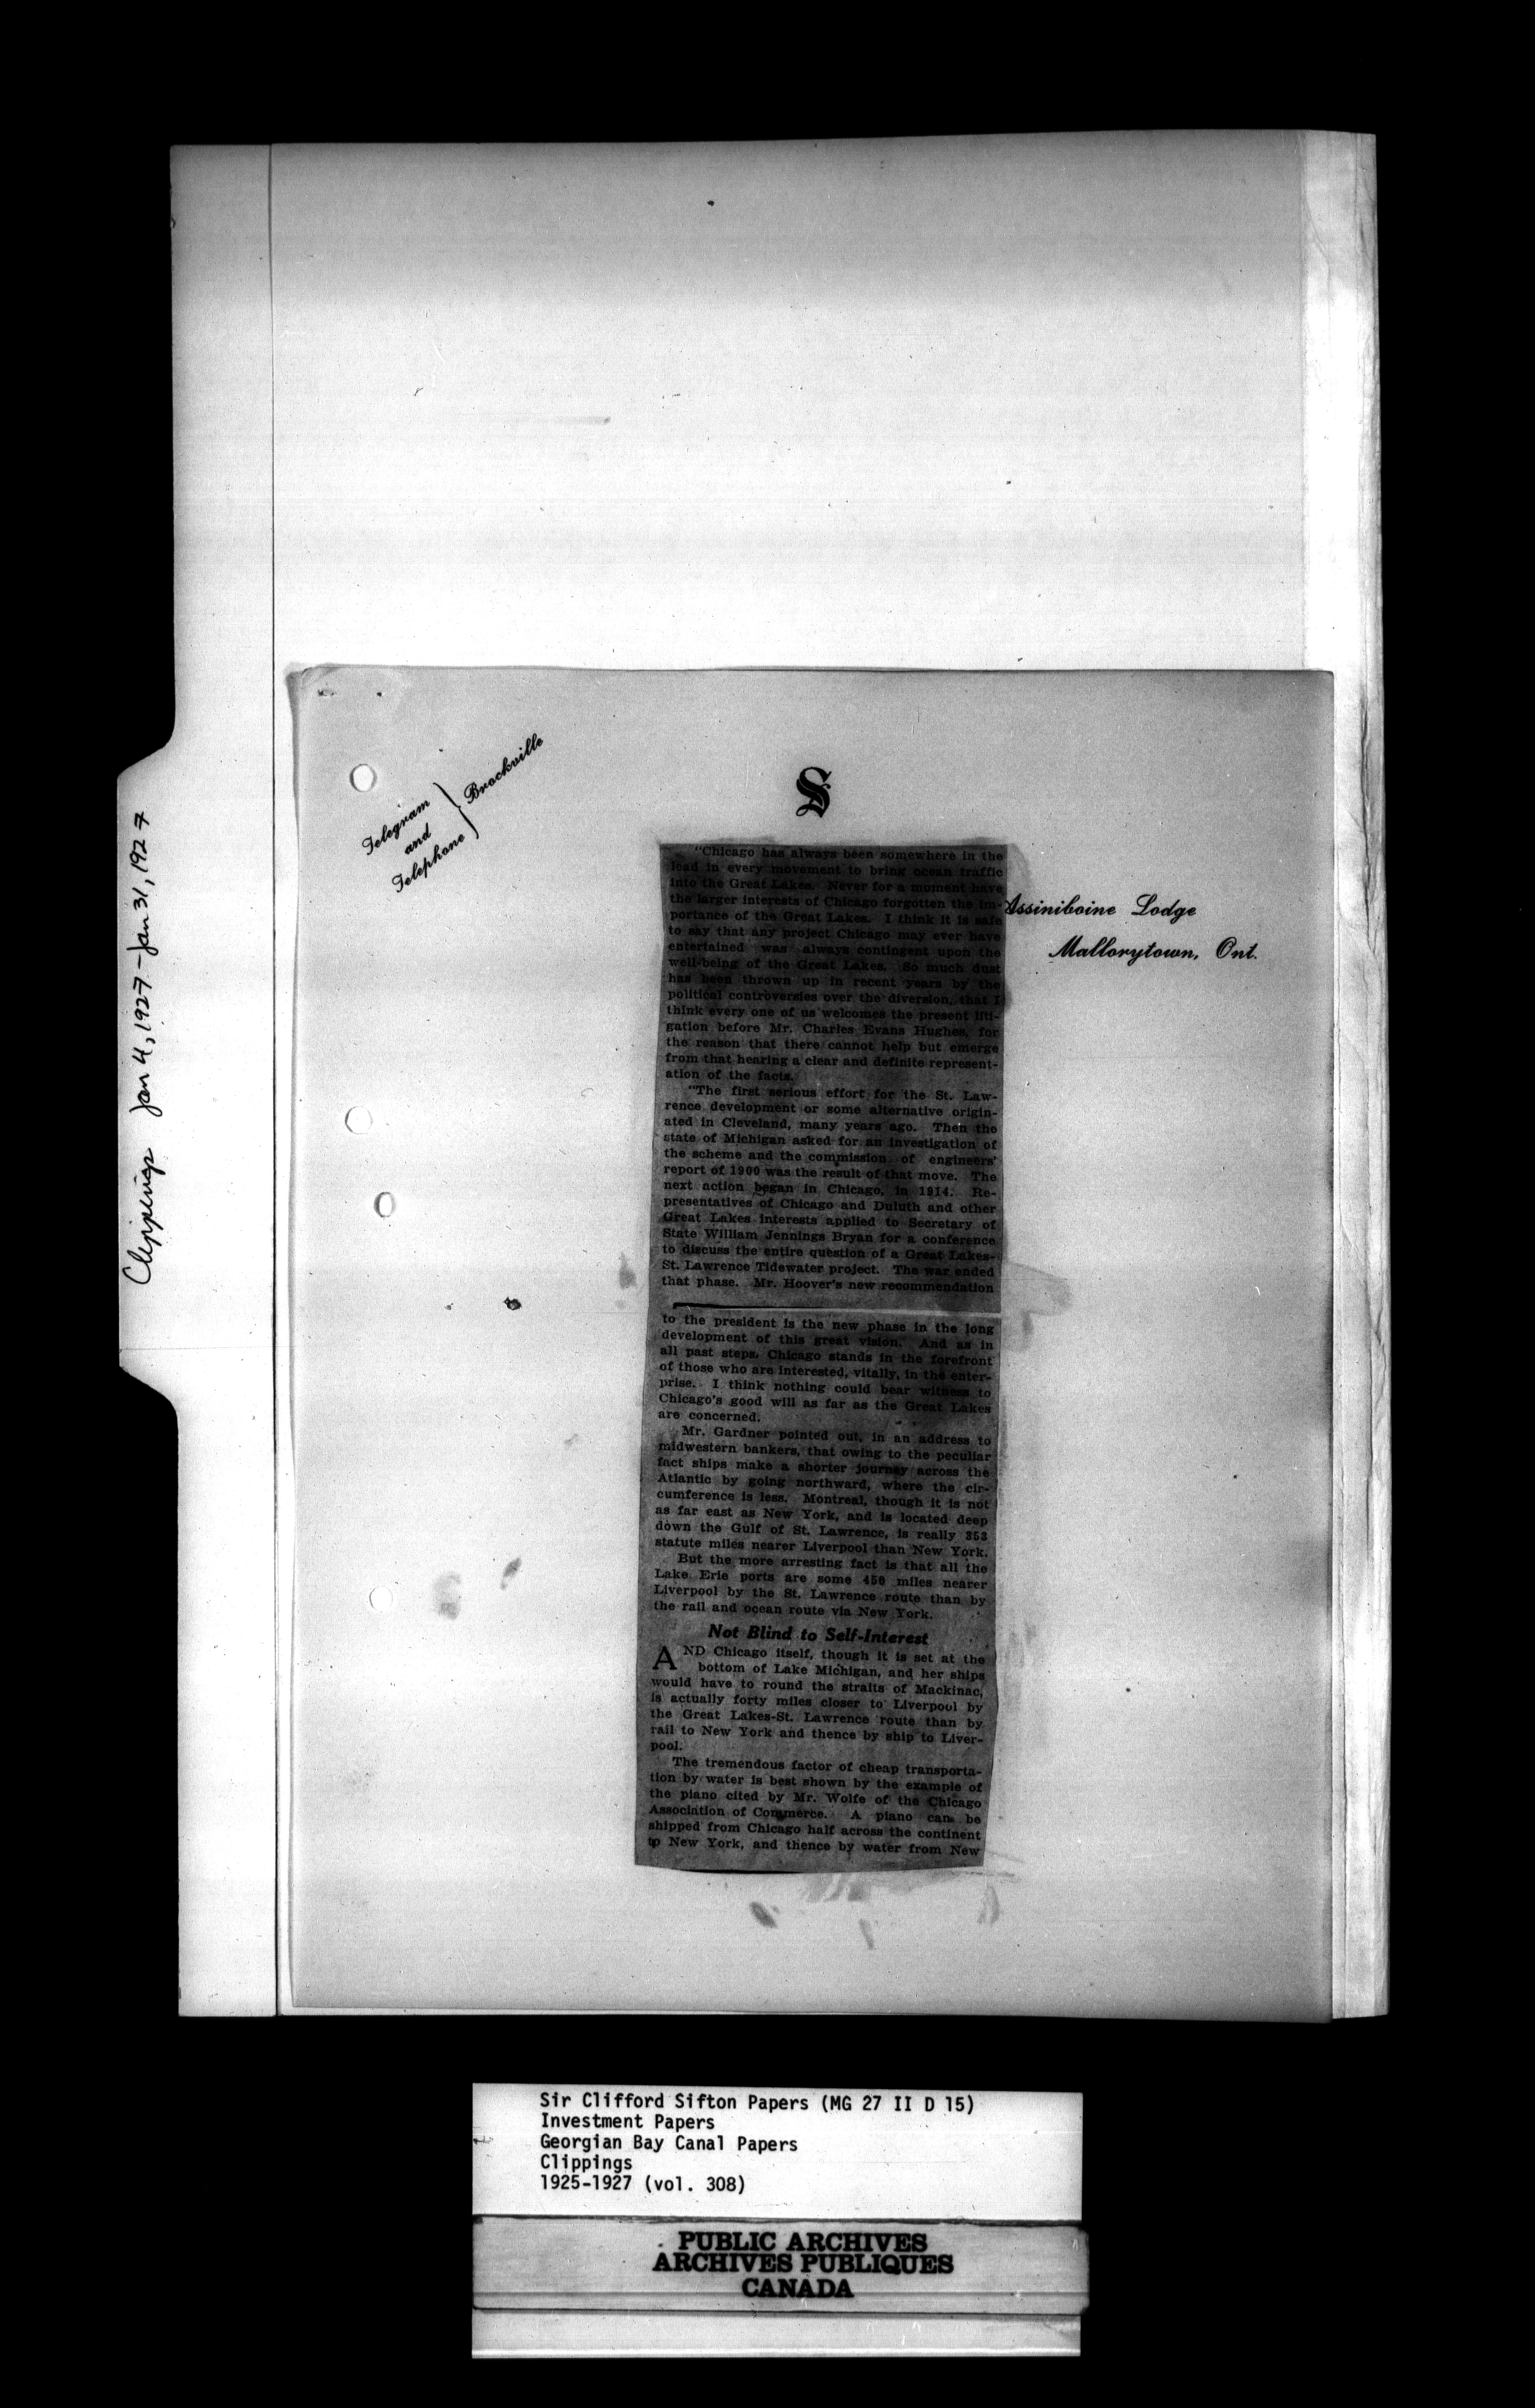 Clippings Jan 4, 1927 - Jan 31, 1927
Telegram
and
Telephone
Brockville
S
Assiniboine Lodge
Mallorytown, Ont.
"Chicago has always been somewhere in the
lead in every movement to bring ocean traffic
into the Great Lakes. Never for a moment have
the larger interests of Chicago forgotten the im-
portance of the Great Lakes. I think it is safe
to say that any project Chicago may ever have
entertained was always contingent upon the
well-being of the Great Lakes. So much dust
has been thrown up in recent years by the
political controversies over the diversion, that I
think every one of us welcomes the present liti-
gation before Mr. Charles Evans Hughes, for
the reason that there cannot help but emerge
from that hearing a clear and definite represent-
ation of the facts.
"The first serious effort for the St. Law-
rence development or some alternative origin-
ated in Cleveland, many years ago. Then the
state of Michigan asked for an investigation of
the scheme and the commission of engineers'
report of 1900 was the result of that move. The
next action began in Chicago, in 1914. Re-
presentatives of Chicago and Duluth and other
Great Lakes interests applied to Secretary of
State William Jennings Bryan for a conference
to discuss the entire question of a Great Lakes-
St. Lawrence Tidewater project. The war ended
that phase. Mr. Hoover's new recommendation
to the president is the new phase in the long
development of this great vision. And as in
all past steps, Chicago stands in the forefront
of those who are interested, vitally, in the enter-
prise. I think nothing could bear witness to
Chicago's good will as far as the Great Lakes
are concerned.
Mr. Gardner pointed out, in an address to
midwestern bankers, that owing to the peculiar
fact ships make a shorter journey across the
Atlantic by going northward, where the cir-
cumference is less. Montreal, though it is not
as far east as New York, and is located deep
down the Gulf of St. Lawrence, is really 353
statute miles nearer Liverpool than New York.
But the more arresting fact is that all the
Lake Erie ports are some 450 miles nearer
Liverpool by the St. Lawrence route than by
the rail and ocean route via New York.
Not Blind to Self-Interest
AND Chicago itself, though it is set at the
bottom of Lake Michigan, and her ships
would have to round the straits of Mackinac,
is actually forty miles closer to Liverpool by
the Great Lakes-St. Lawrence route than by
rail to New York and thence by ship to Liver-
pool.
The tremendous factor of cheap transporta-
tion by water is best shown by the example of
the piano cited by Mr. Wolfe of the Chicago
Association of Commerce. A piano can be
shipped from Chicago half across the continent
to New York, and thence by water from New
Sir Clifford Sifton Papers (MG 27 II D 15)
Investment Papers
Georgian Bay Canal Papers
Clippings
1925-1927 (vol. 308)
PUBLIC ARCHIVES
ARCHIVES PUBLIQUES
CANADA